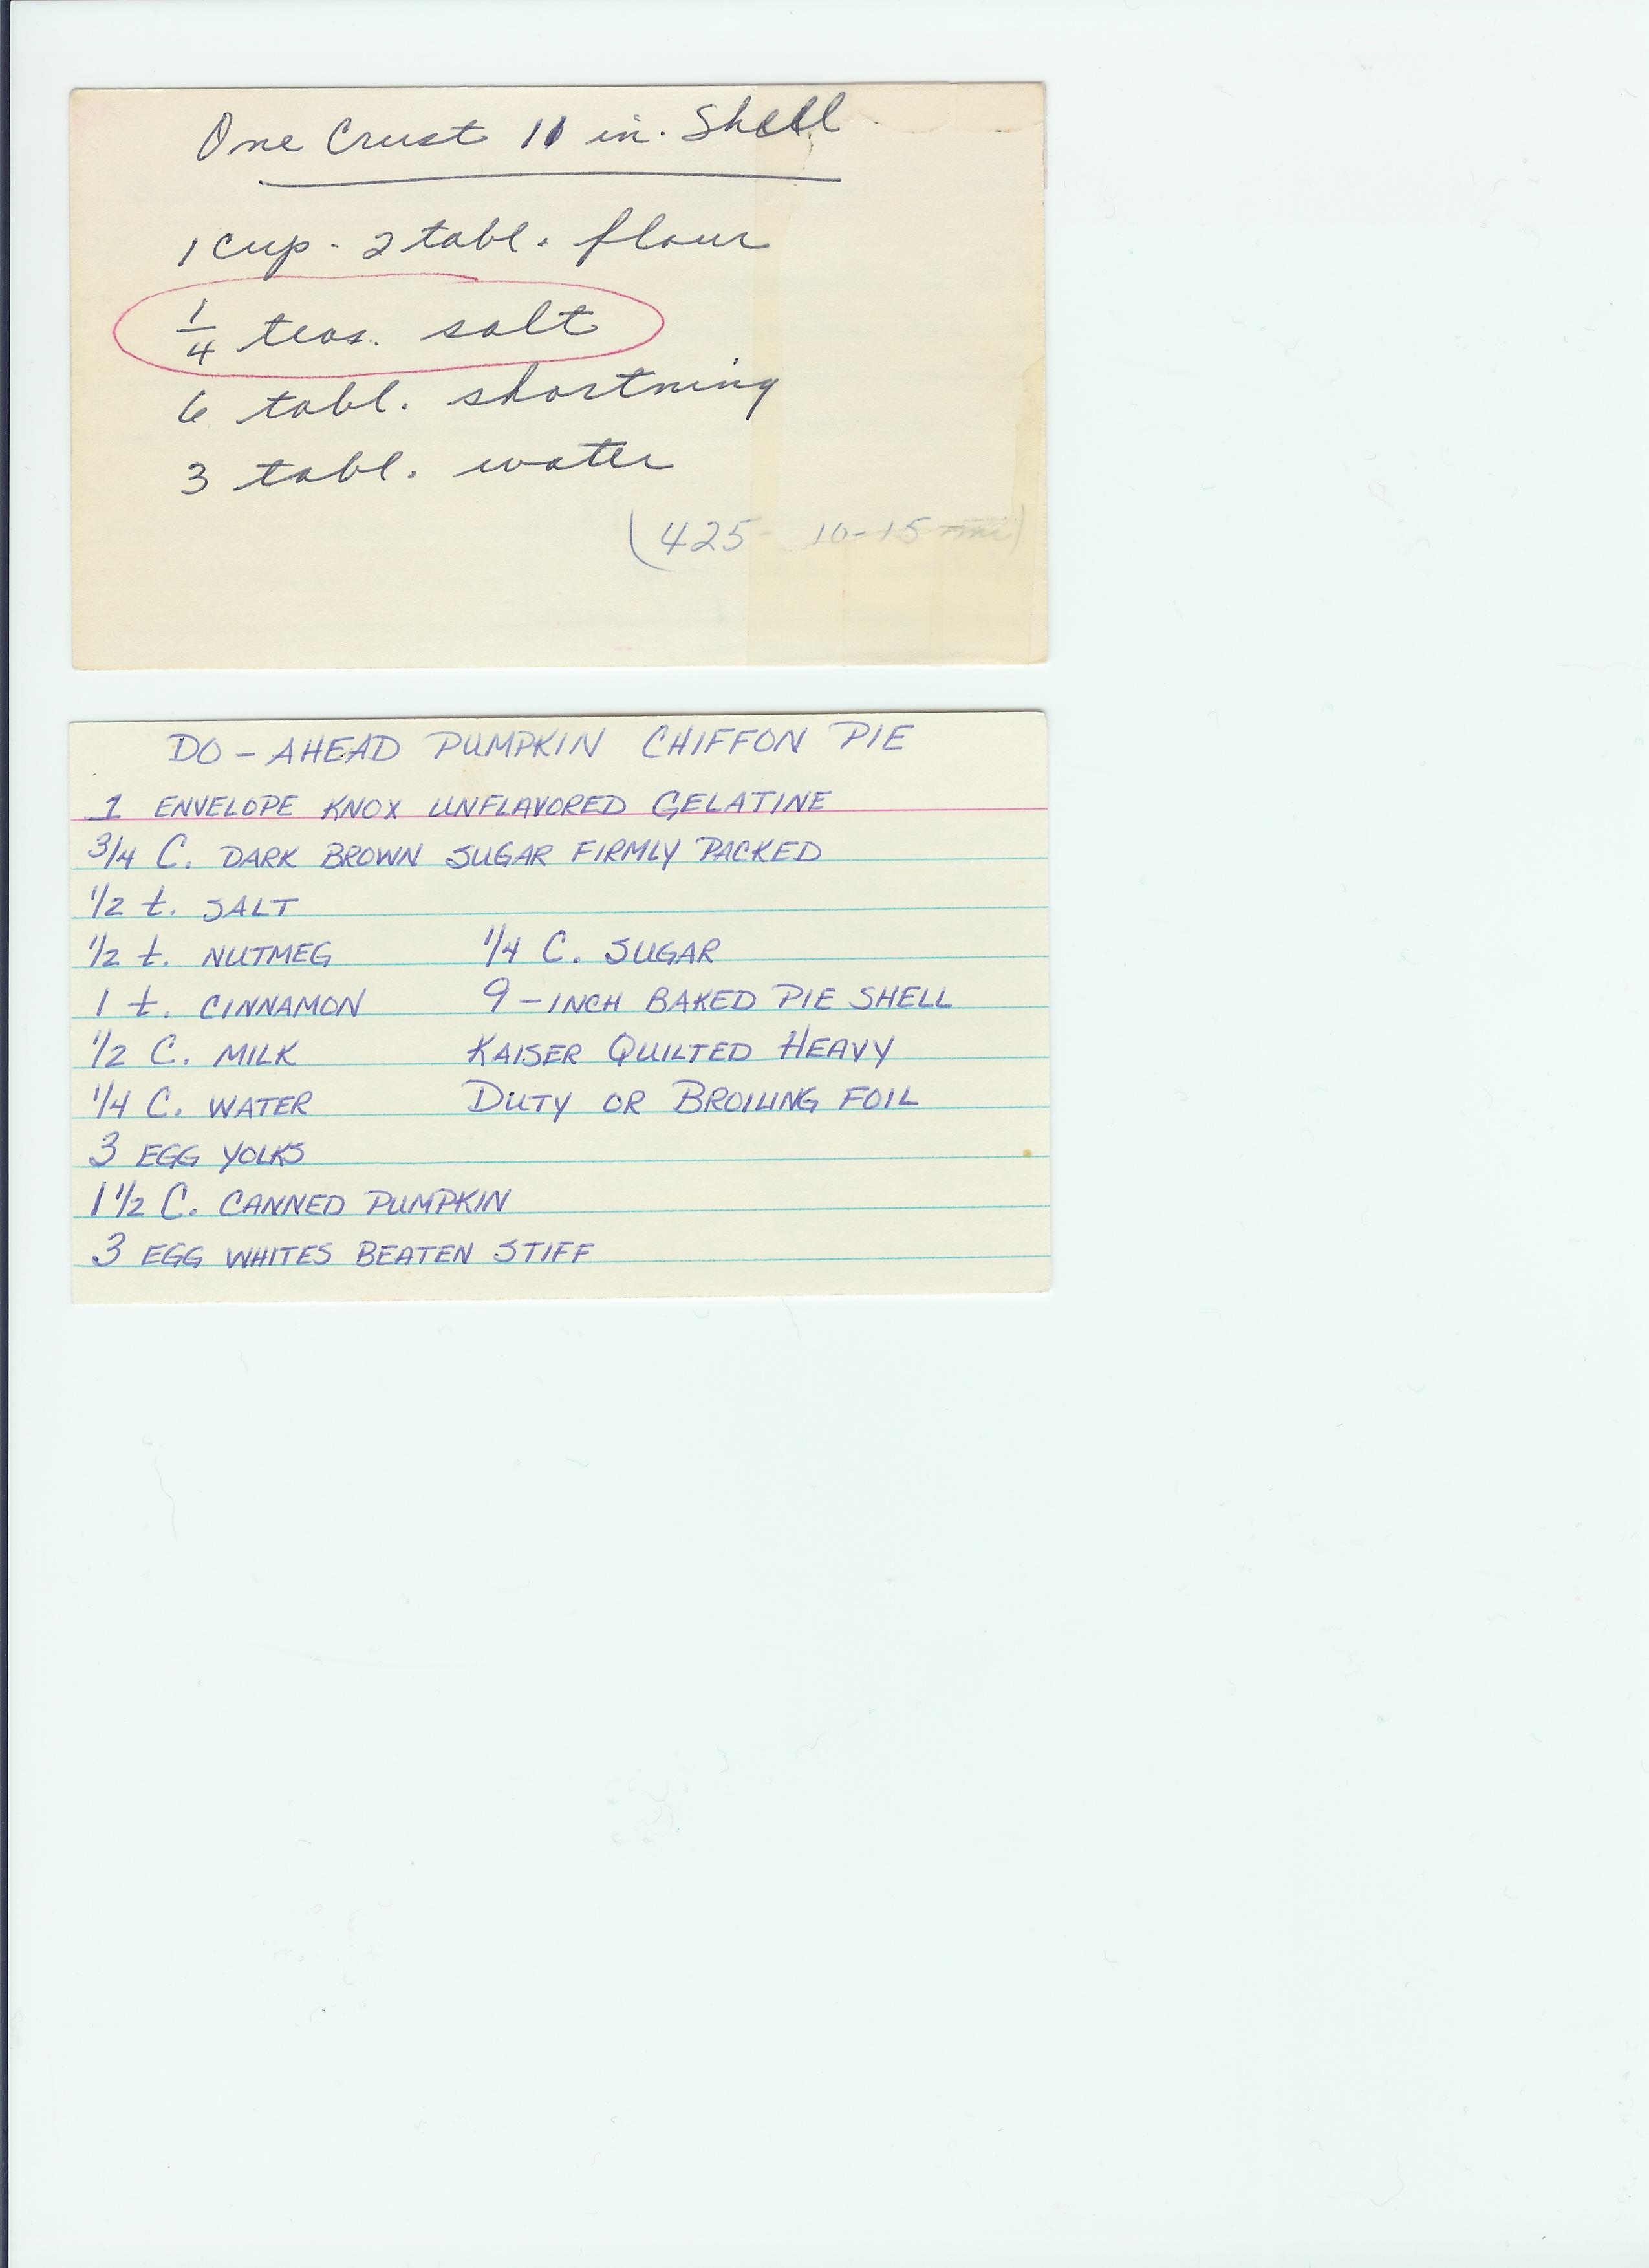 One Crust 11 in. Shell
1 cup - 2 tabl. flour
1/4 teas. salt
6 tabl. shortning
3 tabl. water
(425 10-15 min)
DO-AHEAD PUMPKIN CHIFFON PIE
1 ENVELOPE KNOX UNFLAVORED GELATINE
3/4 C. DARK BROWN SUGAR FIRMLY PACKED
1/2 t. SALT
1/2 t. NUTMEG 1/4 C. SUGAR
1 t. CINNAMON 9-INCH BAKED PIE SHELL
1/2 C. MILK KAISER QUILTED HEAVY
1/4 C. WATER DUTY OR BROILING FOIL
3 EGG YOLKS
1 1/2 C. CANNED PUMPKIN
3 EGG WHITES BEATEN STIFF